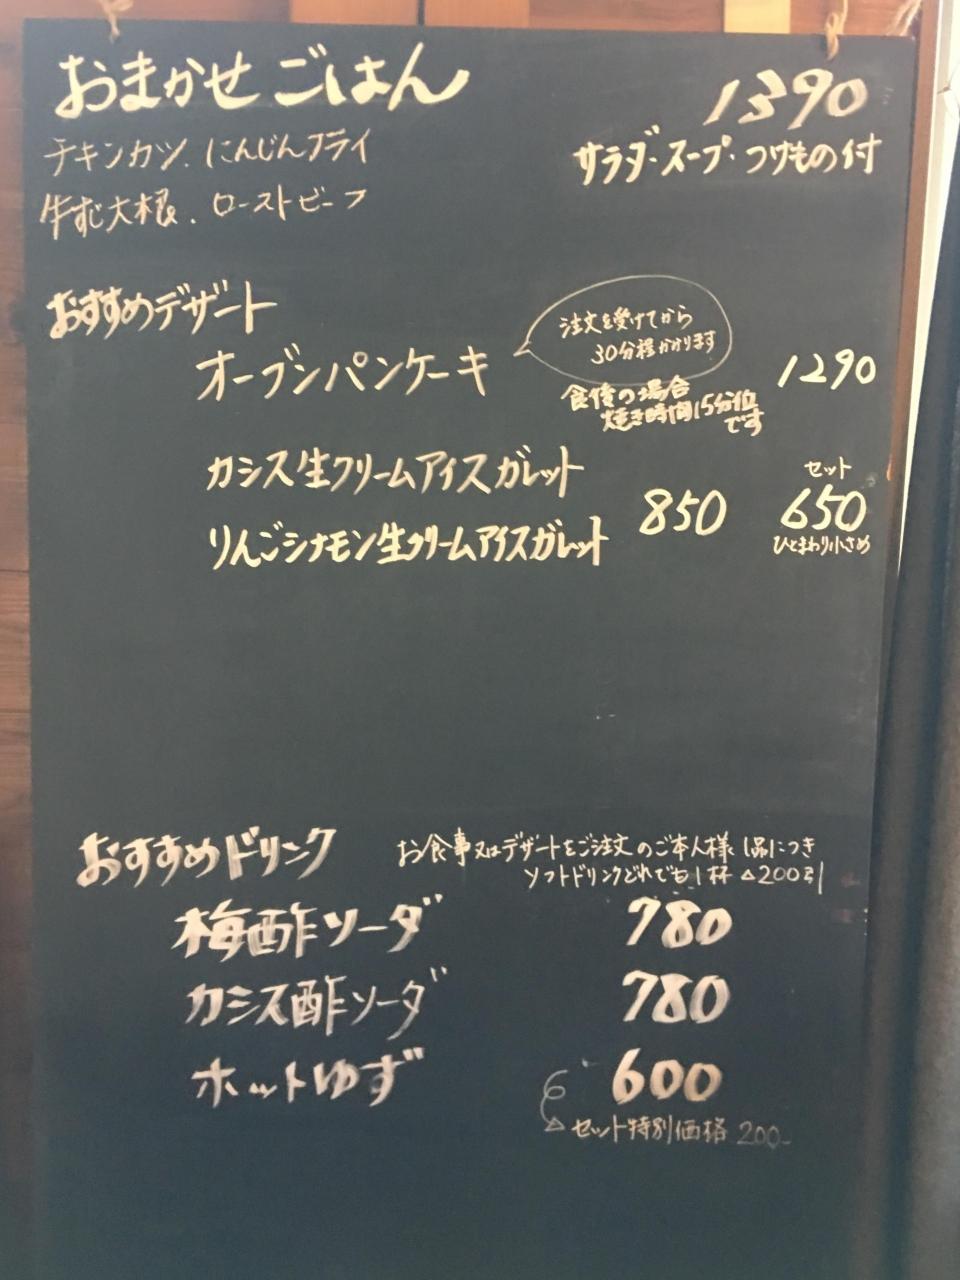 おまかせごはん 1390
チキンカツ、にんじんフライ サラダ・スープ・つけもの付
牛すじ大根、ローストビーフ
おすすめデザート
オーブンパンケーキ 1290
注文を受けてから
30分程かかります
食後の場合
焼き時間15分位
です
カシス生クリームアイスガレット
りんごシナモン生クリームアイスガレット
850
セット
650
ひとまわり小さめ
おすすめドリンク
お食事又はデザートをご注文のご本人様1品につき
ソフトドリンクどれでも1杯△200引
梅酢ソーダ 780
カシス酢ソーダ 780
ホットゆず 600
セット特別価格 200-